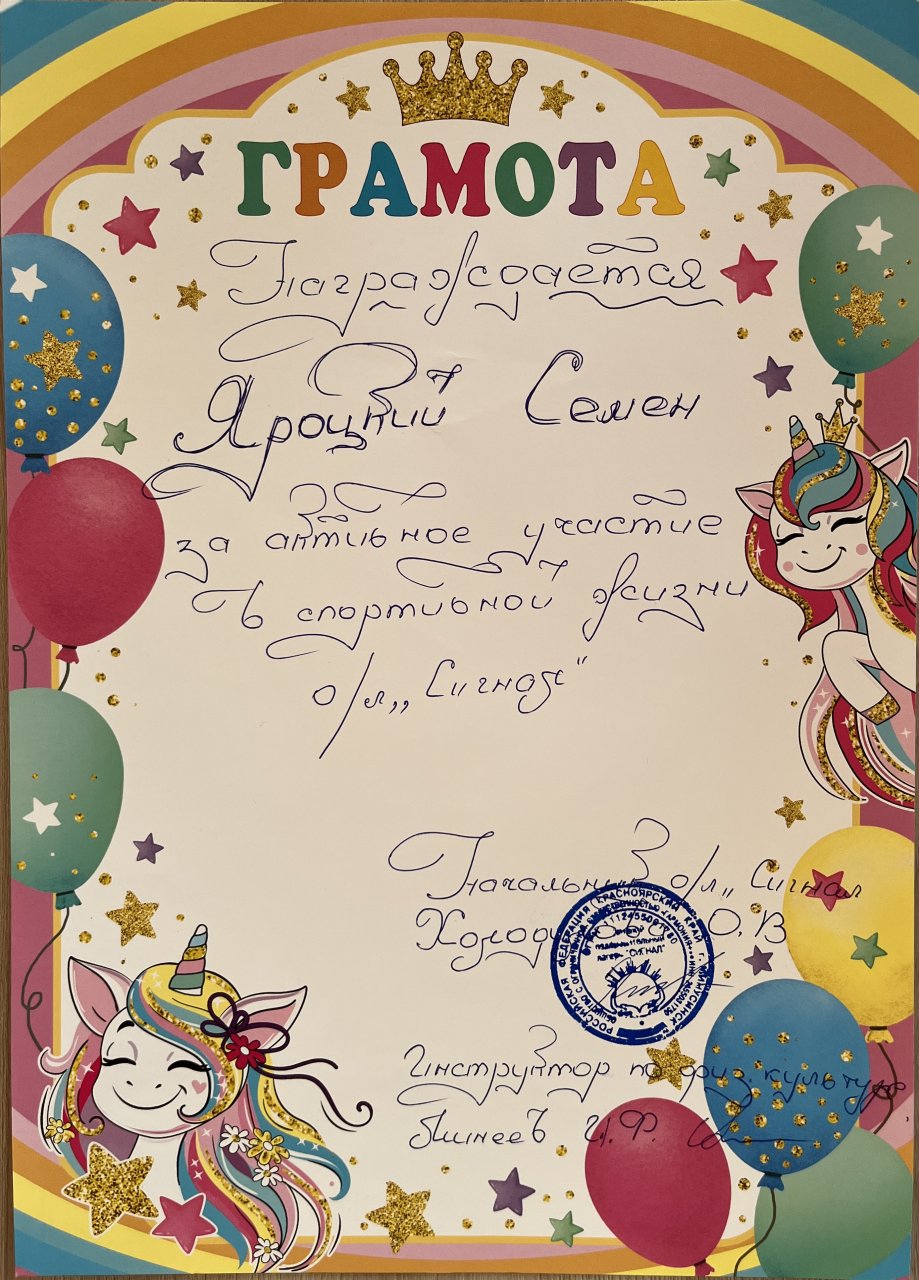 ГРАМОТА
Награждается
Яроцкий Семен
за активное участие
в спортивной жизни
о/л „Сигнал"
Начальник о/л „Сигнал
О.В
РОССИЙСКАЯ ФЕДЕРАЦИЯ КРАСНОЯРСКИЙ КРАЙ г. МИНУСИНСК
"СИГНАЛ"
Инструктор по физ. культуре
И.Ф.